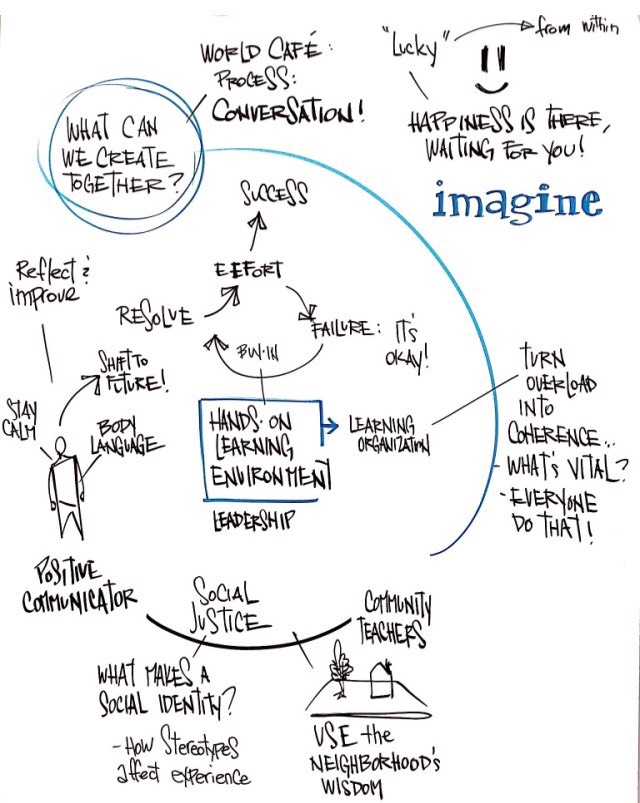 "Lucky"
from within
WORLD CAFÉ:
PROCESS:
CONVERSATION!
WHAT CAN
WE CREATE
TOGETHER?
HAPPINESS IS THERE,
WAITING FOR YOU!
imagine
SUCCESS
EFFORT
RESOLVE
FAILURE: IT'S
OKAY!
BUY-IN
Reflect &
improve
SHIFT TO
FUTURE!
STAY
CALM
BODY
LANGUAGE
POSITIVE
COMMUNICATOR
HANDS-ON
LEARNING
ENVIRONMENT
LEADERSHIP
LEARNING
ORGANIZATION
TURN
OVERLOAD
INTO
COHERENCE...
- WHAT'S VITAL?
- EVERYONE
DO THAT!
SOCIAL
JUSTICE
COMMUNITY
TEACHERS
WHAT MAKES A
SOCIAL IDENTITY?
- How Stereotypes
affect experience
USE the
NEIGHBORHOOD'S
WISDOM